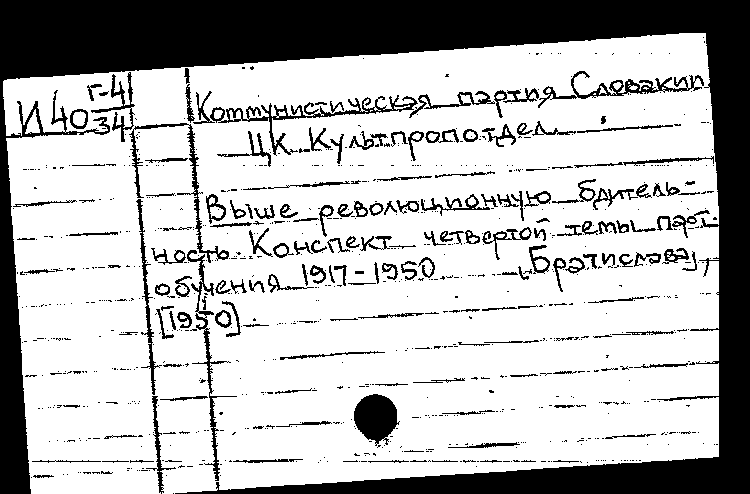 И 40 Г-4/34
Коммунистическая партия Словакии
ЦК Культпропотдел.
Выше революционную бдитель-
ность. Конспект четвертой темы парт.
обучения 1917-1950 "Братислава",
[1950].